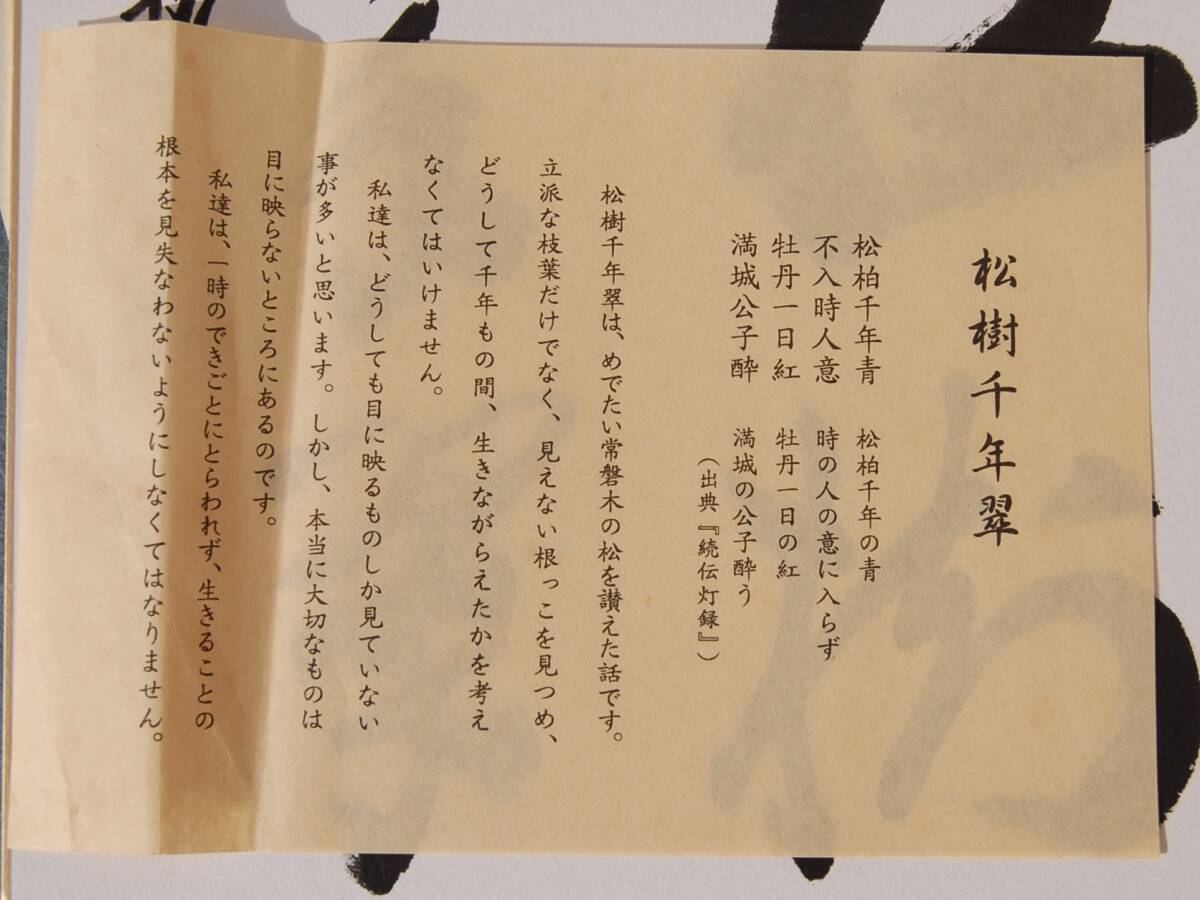 松樹千年翠
松柏千年青　松柏千年の青
不入時人意　時の人の意に入らず
牡丹一日紅　牡丹一日の紅
満城公子酔　満城の公子酔う
（出典『続伝灯録』）
松樹千年翠は、めでたい常磐木の松を讃えた話です。
立派な枝葉だけでなく、見えない根っこを見つめ、
どうして千年もの間、生きながらえたかを考え
なくてはいけません。
私達は、どうしても目に映るものしか見ていない
事が多いと思います。しかし、本当に大切なものは
目に映らないところにあるのです。
私達は、一時のできごとにとらわれず、生きることの
根本を見失なわないようにしなくてはなりません。